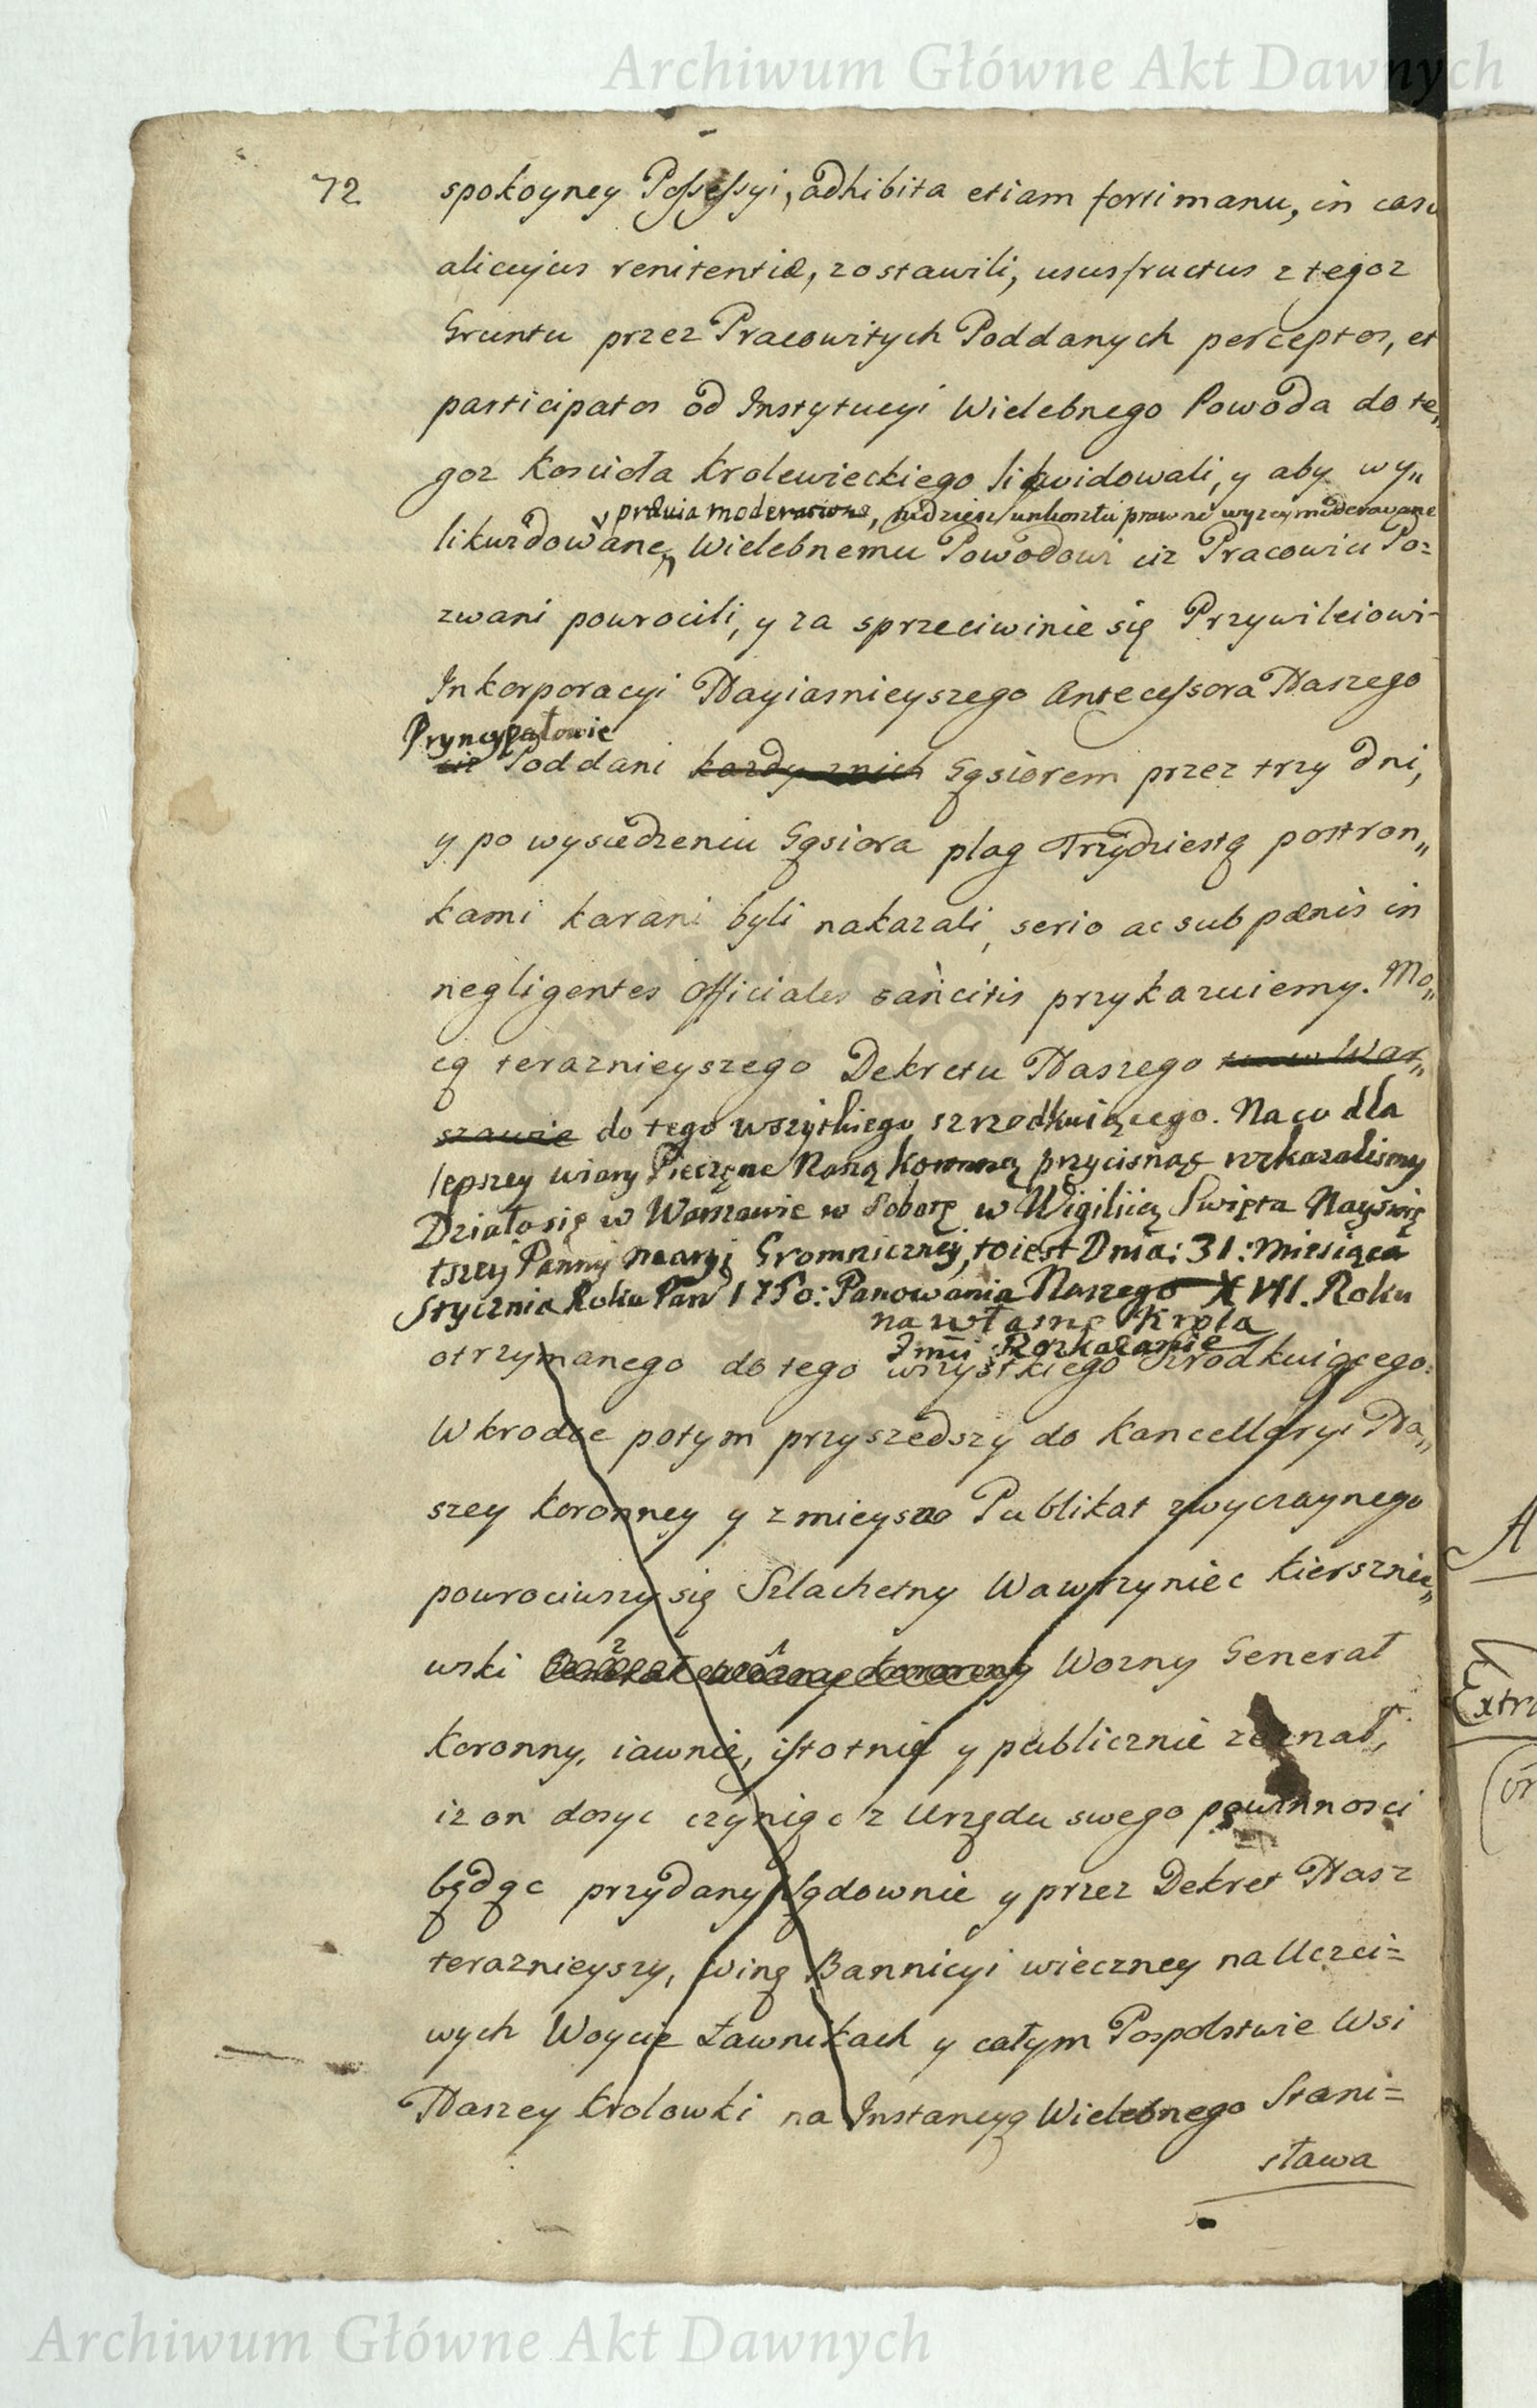 Archiwum Główne Akt Dawnych
72
spokoyney Possessyi, adhibita etiam forti manu, in casu
alicujus renitentiæ, zostawili, ususfructus z tegoz
Gruntu przez Pracowitych Poddanych perceptos, et
participatos od Instytucyi Wielebnego Powoda do te„
goz Koscioła Krolewieckiego likwidowali, y aby wy„
prævia moderatione, tudziesz unkoszta prawne wyzey moderowane
likwidowane, Wielebnemu Powodowi ciz Pracowici Po=
zwani powrocili, y za sprzeciwinie się Przywileiowi
Inkorporacyi Nayiasnieyszego Antecessora Naszego
Pryncypałowie
ciż Poddani kazdy znich Gąsiorem przez trzy dni,
y po wysiedzeniu Gąsiora plag Trzydziestą postron„
kami karani byli nakazali, serio ac sub pœnis in
negligentes Officiales sancitis przykazuiemy. Mo„
cą teraznieyszego Dekretu Naszego tu w War„
szawie do tego wszytkiego szrzodkuiącego. Na co dla
lepszey wiary Pieczęnc Naszą Koronną przycisnąc rozkazalismy
Działo się w Warszawie w Sobotę w Wigiliią Swięta Nayswię
tszey Panny Maryi Gromniczney, to iest Dnia: 31: Miesiąca
Stycznia Roku Pan 1750: Panowania Naszego XVII. Roku
na własne Krola
Jmci Rozkazanie
otrzymanego do tego wszystkiego Szrodkuiącego.
Wkrodce potym przyszedszy do Kancellaryi Na„
szey Koronney y z mieysca Publikat zwyczaynego
powrociwszy się Szlachetny Wawrzyniec Kierszniew„
wski Wozny Generał
Koronny, iawnie, istotnie y publicznie zeznał,
iz on dosyc czyniąc z Urzędu swego powinnosci
będąc przydany Sądownie y przez Dekret Nasz
teraznieyszy, winę Bannicyi wieczney na Uczci=
wych Woycie Ławnikach y całym Pospolstwie Wsi
Naszey Krolowki na Instancyą Wielebnego Stani=
sława
Archiwum Główne Akt Dawnych